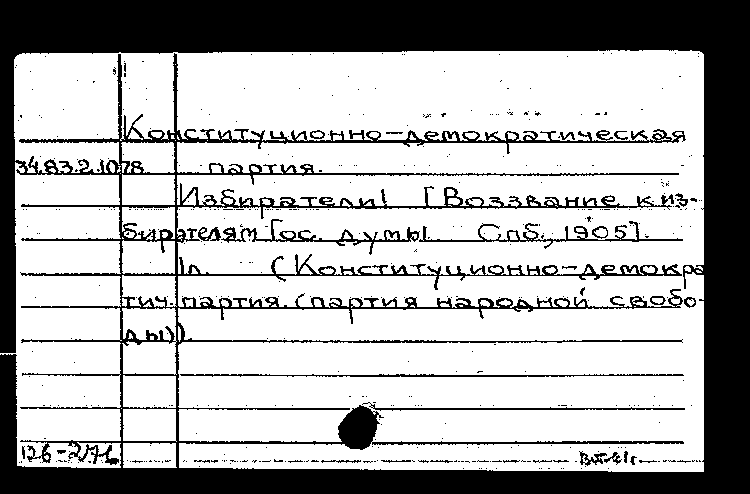 Конституционно-демократическая
34.83.2.1078. партия.
Избиратели! [Воззвание к из-
бирателям Гос. думы. Спб., 1905].
1л. (Конституционно-демокра
тич. партия. (партия народной свобо-
ды)).
126-2/76